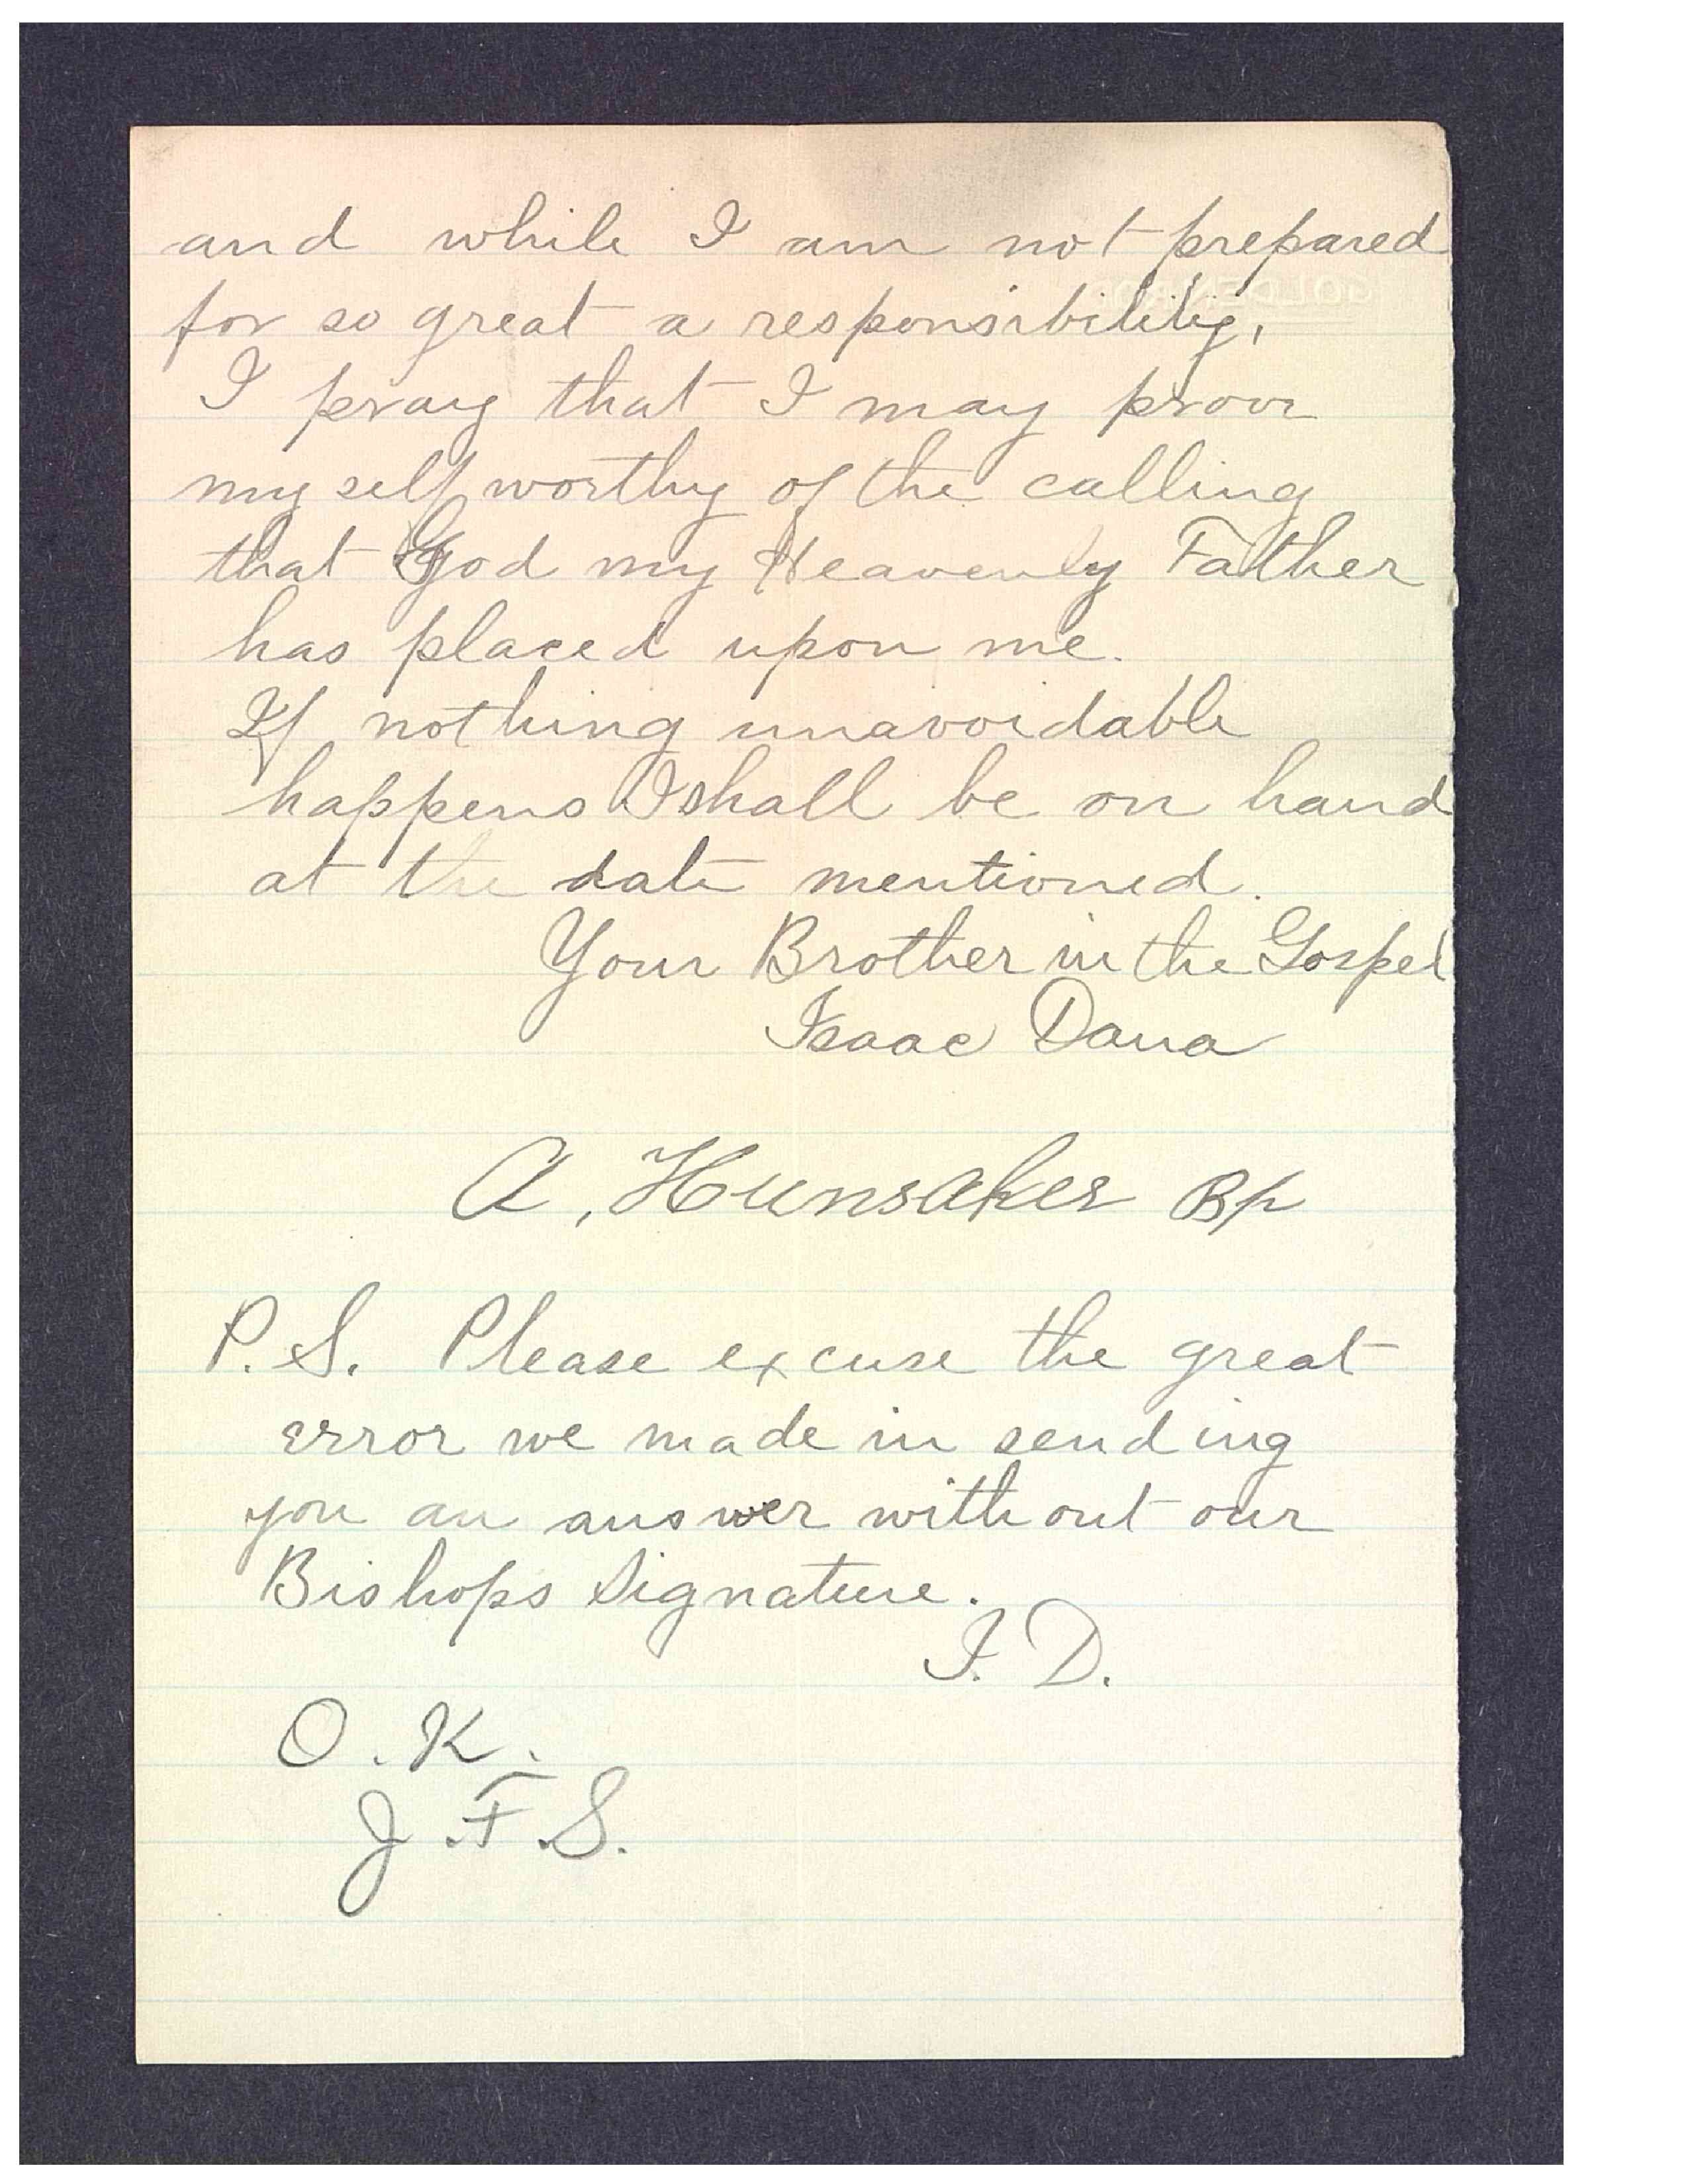 and while I am not prepared
for so great a responsibility,
I pray that I may prove
my self worthy of the calling
that God my Heavenly Father
has placed upon me.
If nothing unavoidable
happens I shall be on hand
at the date mentioned.
Your Brother in the Gospel
Isaac Dana
A, Hunsaker Bp
P.S. Please excuse the great
error we made in sending
you an answer without our
Bishops Signature.
I. D.
O.K.
J.F.S.